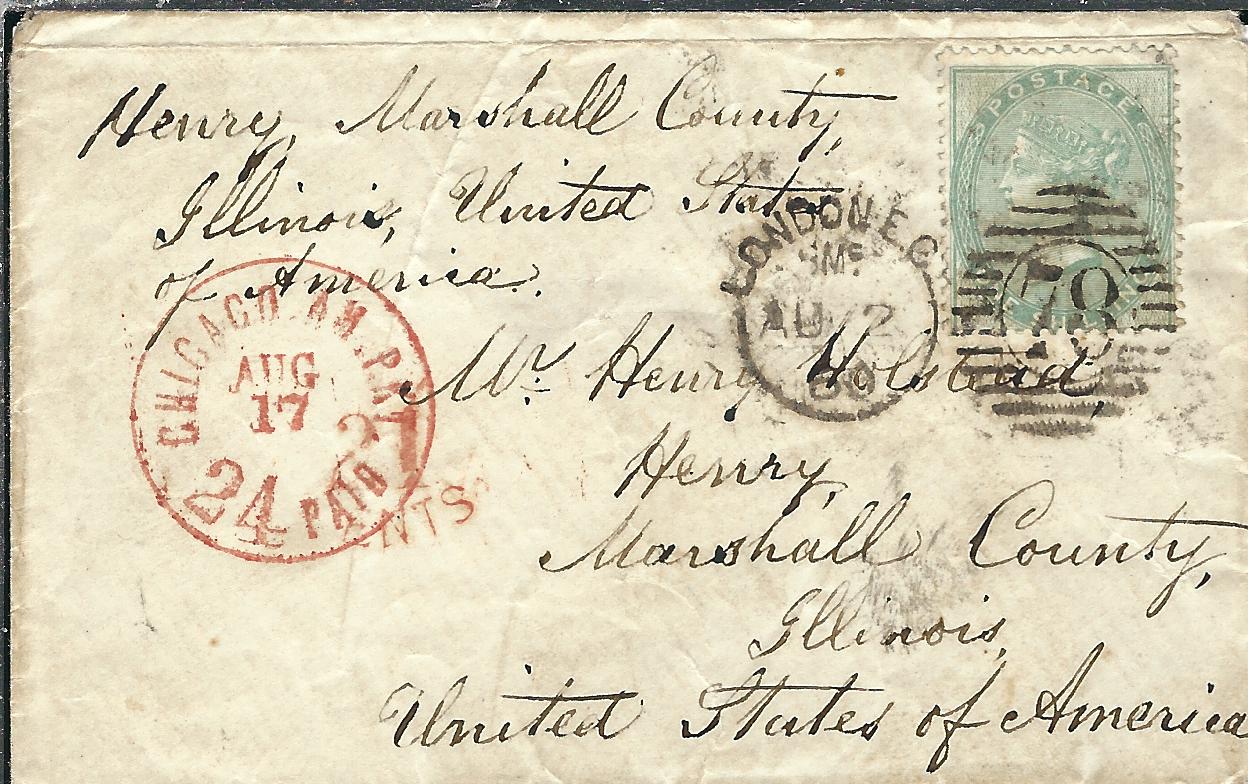 Henry, Marshall County,
Illinois, United States
of America.
POSTAGE
LONDON E.C
AU 2
78
CHICAGO AM. PKT
AUG
17
24 PAID
Mr. Henry Holstead,
Henry,
Marshall County,
Illinois,
United States of America